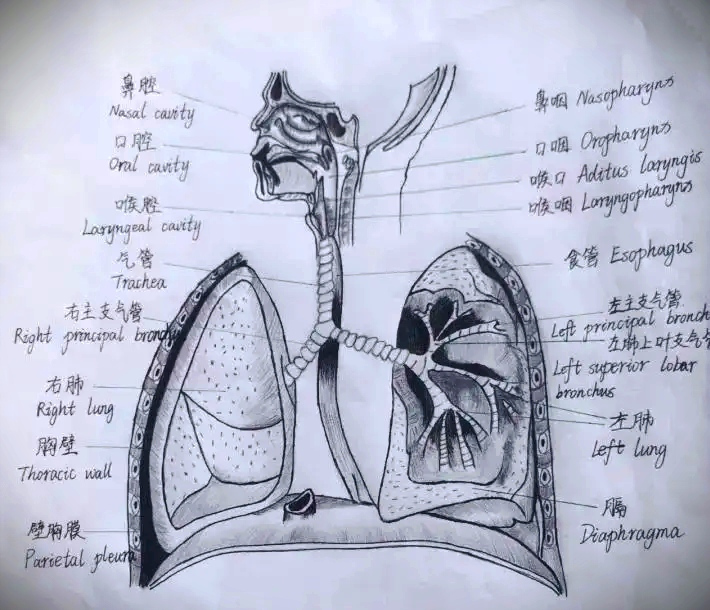 鼻腔
Nasal cavity
口腔
Oral cavity
喉腔
Laryngeal cavity
气管
Trachea
右主支气管
Right principal bronchy
右肺
Right lung
胸壁
Thoracic wall
壁胸膜
Parietal pleura
鼻咽 Nasopharynx
口咽 Oropharynx
喉口 Aditus laryngis
喉咽 Laryngopharynx
食管 Esophagus
左主支气管
Left principal bronch
左肺上叶支气管
Left superior lobar
bronchus
左肺
Left lung
膈
Diaphragma